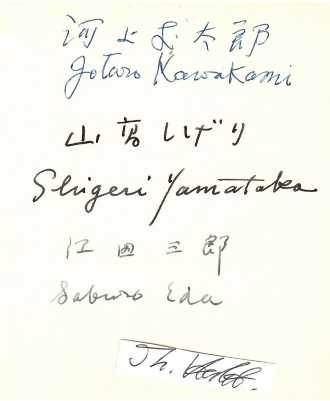 河上丈太郎
Jotaro Kawakami
山高しげり
Shigeri Yamataka
江田三郎
Saburo Eda
Th.